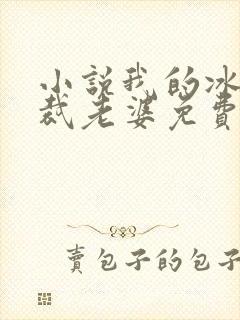 小説我的冰
裁老婆免費
賣包子的包子